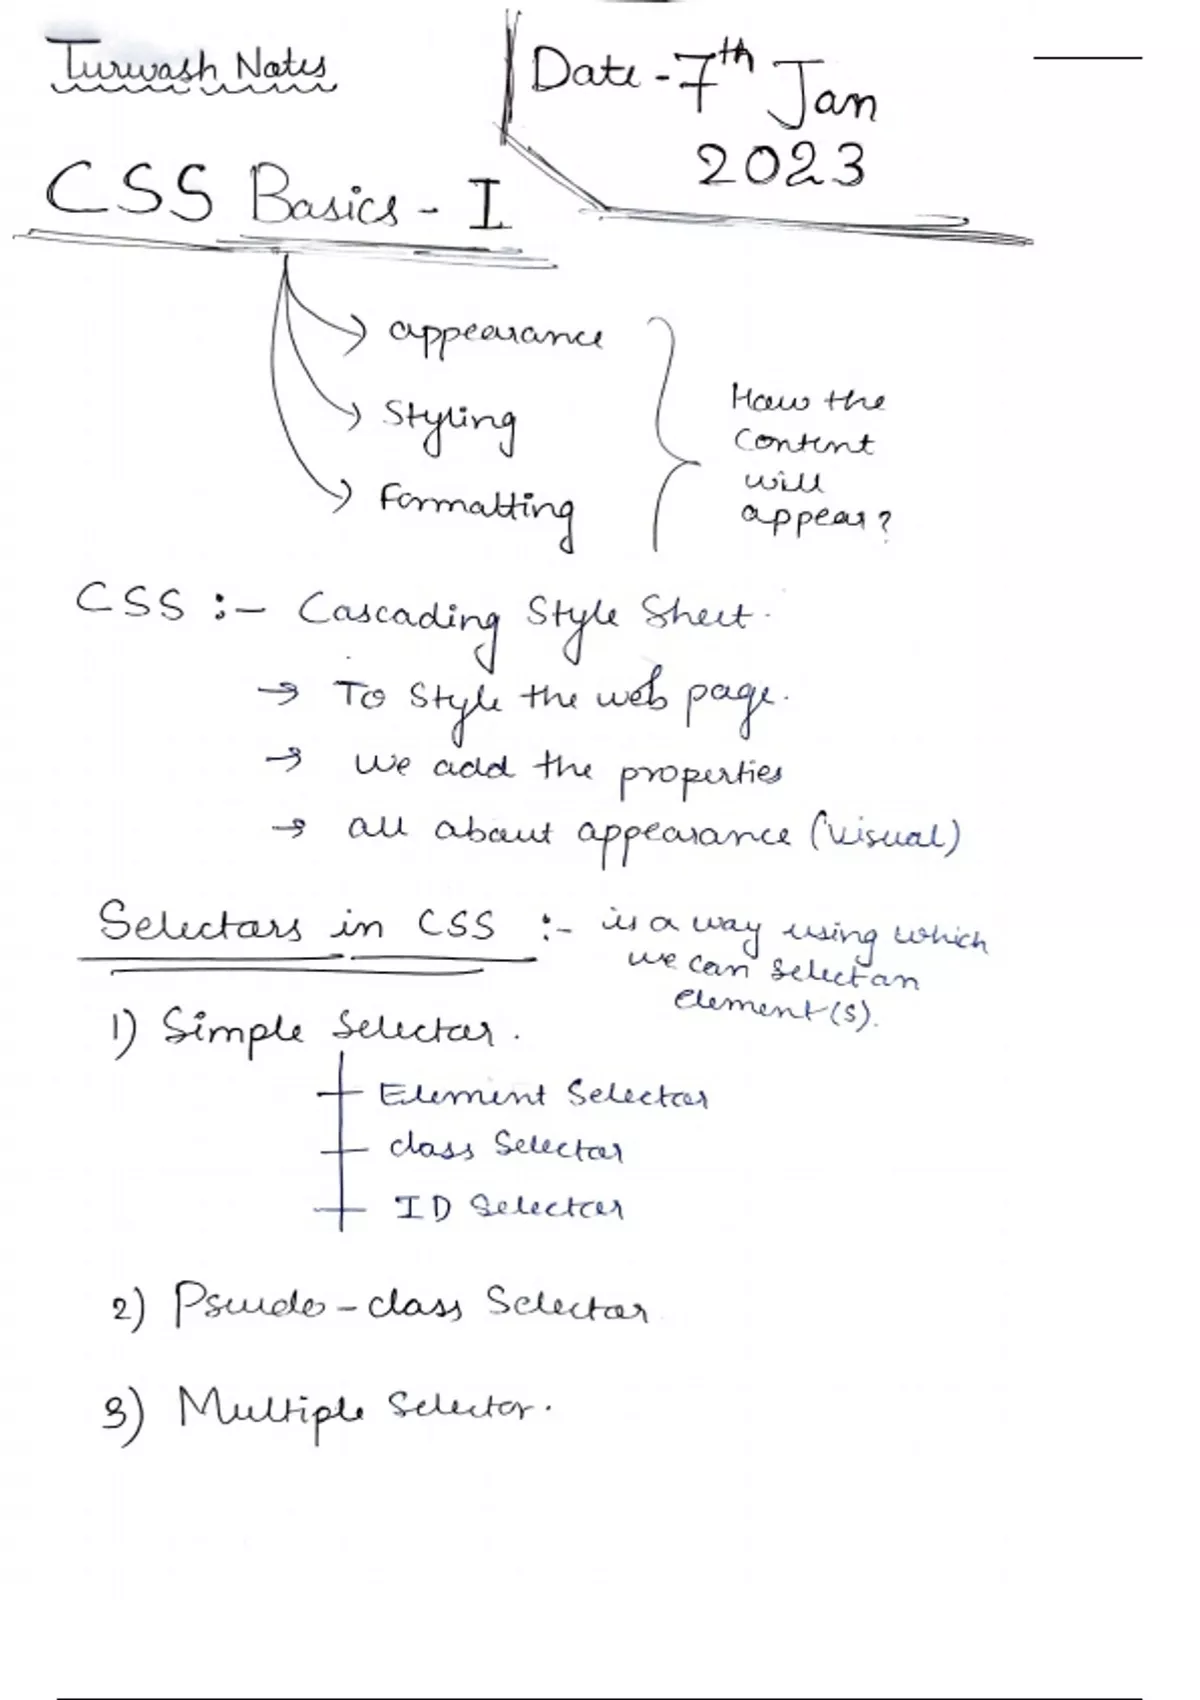 Turwash Notes
Date - 7th Jan
2023
CSS Basics - I
appearance
Styling
Formatting
How the
content
will
appear?
CSS :- Cascading Style Sheet.
→ To Style the web page.
→ we add the properties
→ all about appearance (visual)
Selectors in CSS :- is a way using which
we can select an
element(s).
1) Simple Selector.
Element Selector
class Selector
ID Selector
2) Pseudo-class Selector
3) Multiple Selector.